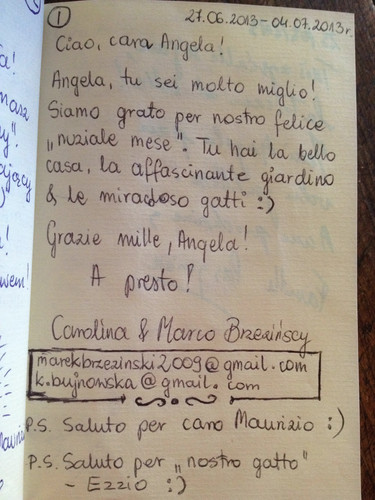 1
27.06.2013-04.07.2013r.
Ciao, cara Angela!
Angela, tu sei molto miglio!
Siamo grato per nostro felice
„nuziale mese". Tu hai la bello
casa, la affascinante giardino
& le miradoso gatti :)
Grazie mille, Angela!
A presto!
Carolina & Marco Brzezińscy
marekbrzezinski2009@gmail.com
k.bujnowska@gmail.com
P.S. Saluto per caro Maurizio :)
P.S. Saluto per „nostro gatto"
- Ezzio :)